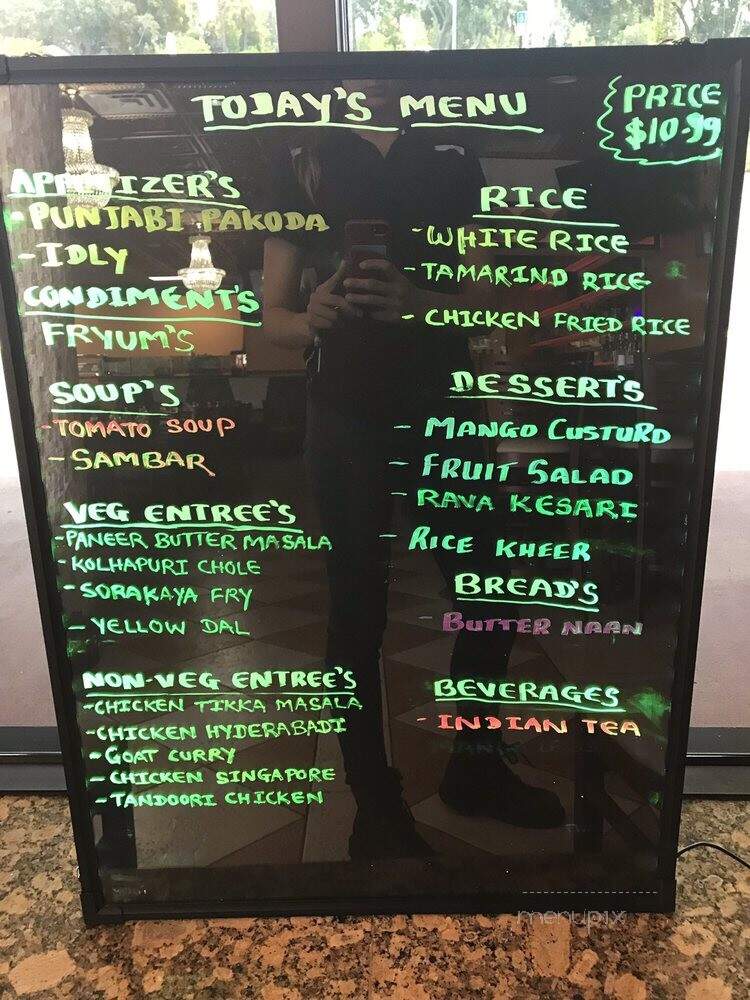 TODAY'S MENU
PRICE
$10.99
APPETIZER'S
- PUNJABI PAKODA
- IDLY
CONDIMENT'S
FRYUM'S
SOUP'S
- TOMATO SOUP
- SAMBAR
VEG ENTREE'S
- PANEER BUTTER MASALA
- KOLHAPURI CHOLE
- SORAKAYA FRY
- YELLOW DAL
NON-VEG ENTREE'S
- CHICKEN TIKKA MASALA
- CHICKEN HYDERABADI
- GOAT CURRY
- CHICKEN SINGAPORE
- TANDOORI CHICKEN
RICE
- WHITE RICE
- TAMARIND RICE
- CHICKEN FRIED RICE
DESSERT'S
- MANGO CUSTURD
- FRUIT SALAD
- RAVA KESARI
- RICE KHEER
BREAD'S
- BUTTER NAAN
BEVERAGES
- INDIAN TEA
menupix